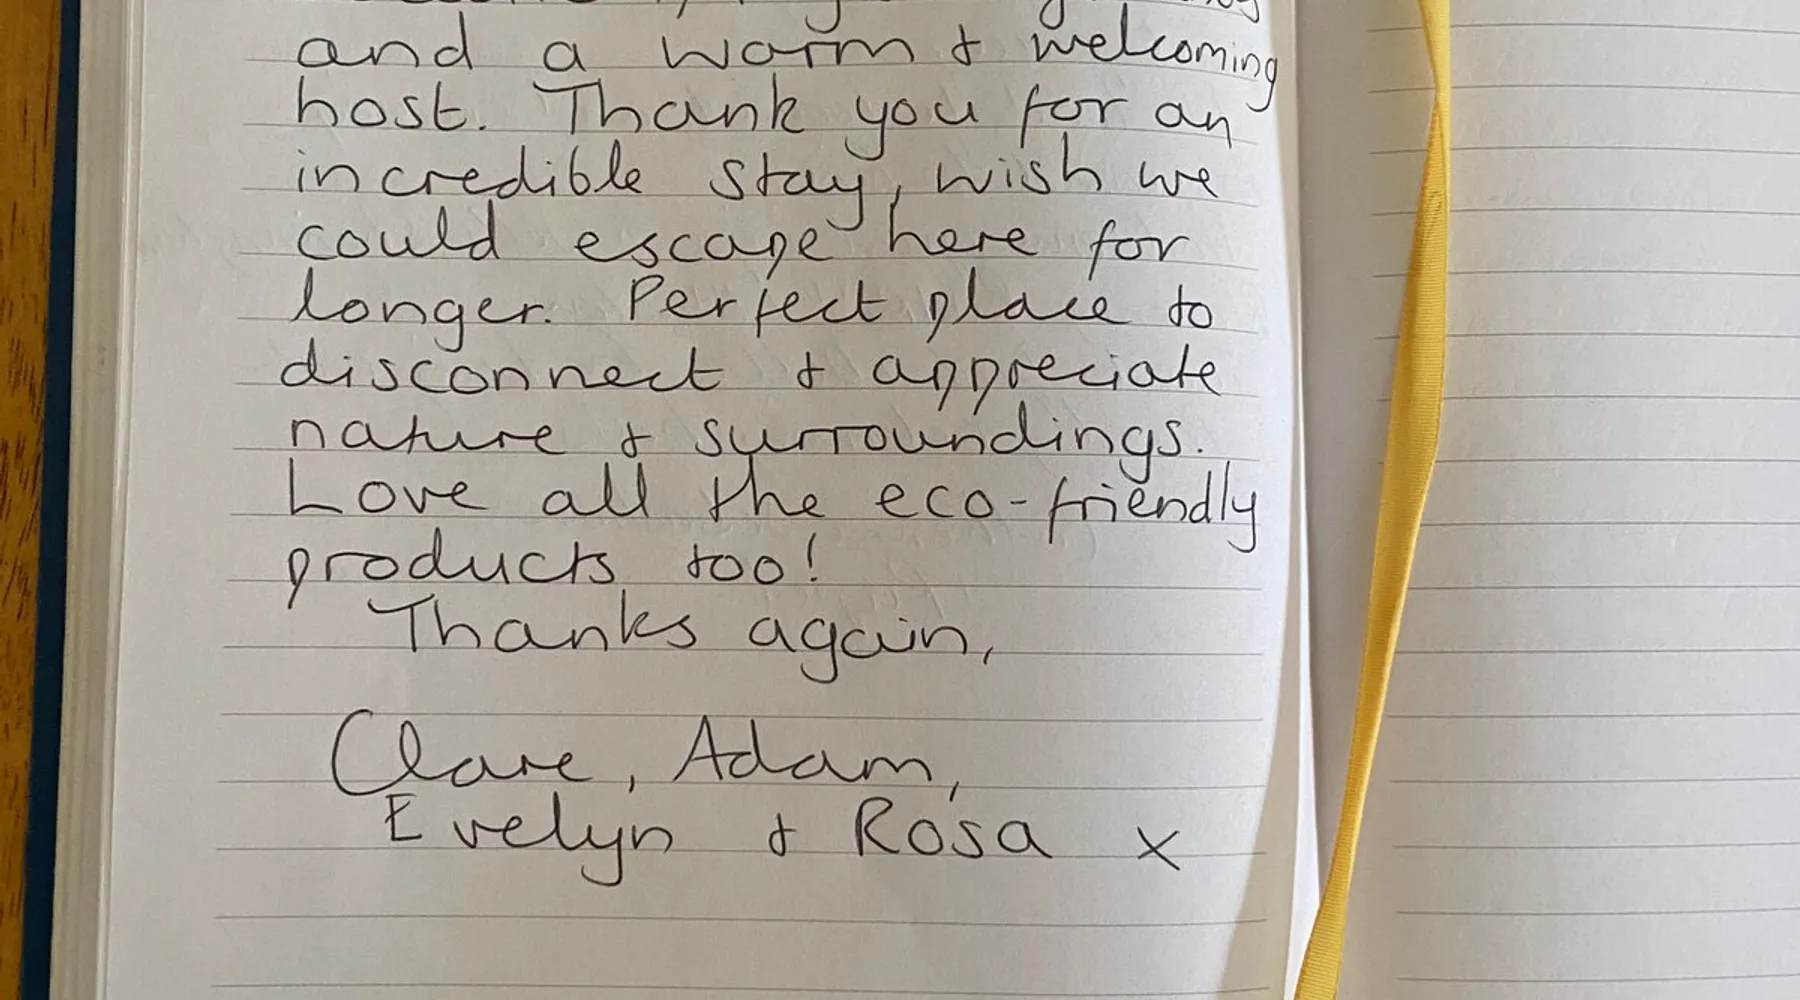 and a warm & welcoming
host. Thank you for an
incredible stay, wish we
could escape here for
longer. Perfect place to
disconnect & appreciate
nature & surroundings.
Love all the eco-friendly
products too!
Thanks again,
Clare, Adam,
Evelyn & Rosa x